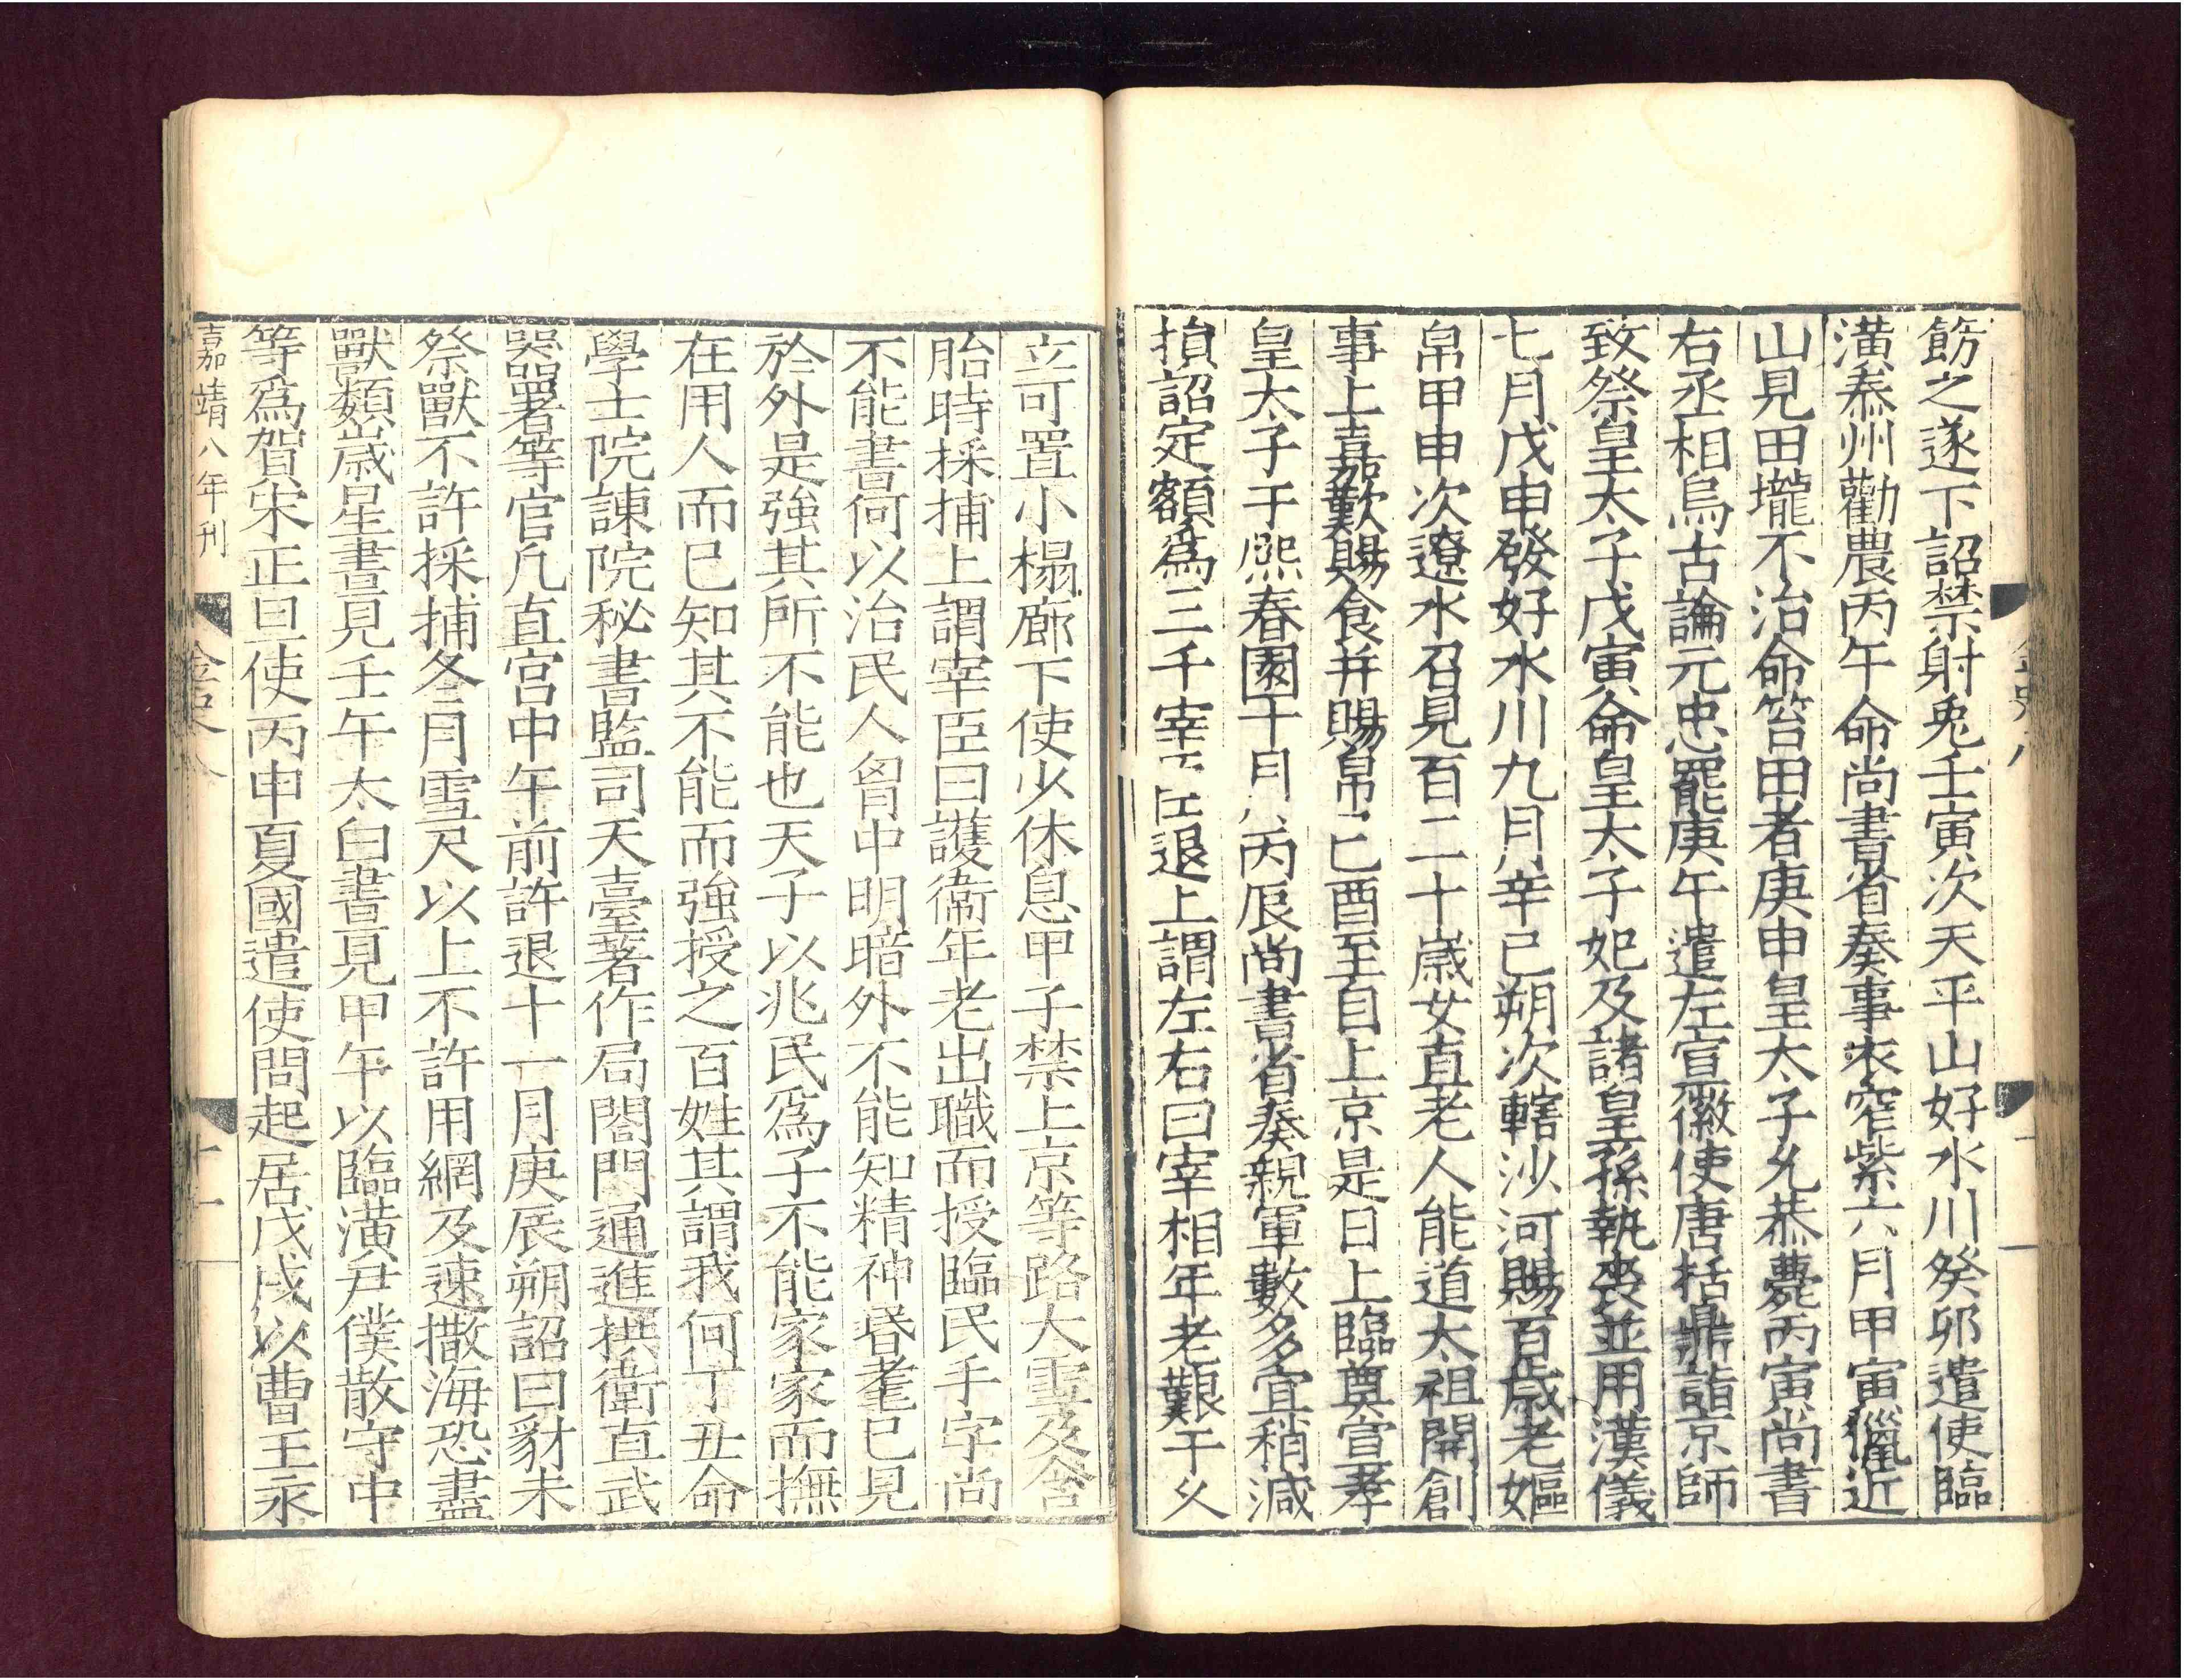 飭之遂下詔禁射兎壬寅次天平山好水川癸卯遣使臨
潢泰州勸農丙午命尚書省奏事衣窄紫六月甲寅獵近
山見田壠不治命笞田者庚申皇太子允恭薨丙寅尚書
右丞相烏古論元忠罷庚午遣左宣徽使唐括鼎詣京師
致祭皇太子戊寅命皇太子妃及諸皇孫執喪並用漢儀
七月戊申發好水川九月辛巳朔次轄沙河賜百歳老嫗
帛甲申次遼水召見百二十歳女直老人能道太祖開創
事上嘉歎賜食并賜帛己酉至自上京是日上臨奠宣孝
皇太子于熙春園十月丙辰尚書省奏親軍數多宜稍減
損詔定額爲三千宰臣退上謂左右曰宰相年老艱于乆
立可置小榻廊下使少休息甲子禁上京等路大雪及含
胎時採捕上謂宰臣曰護衛年老出職而授臨民手字尚
不能書何以治民人胷中明暗外不能知精神昬耄已見
於外是強其所不能也天子以兆民爲子不能家家而撫
在用人而已知其不能而強授之百姓其謂我何丁丑命
學士院諫院秘書監司天臺著作局閤門通進拱衛直武
器署等官凡直宮中午前許退十一月庚辰朔詔曰豺未
祭獸不許採捕冬月雪尺以上不許用網及速撒海恐盡
獸類歳星晝見壬午太白晝見甲午以臨潢尹僕散守中
等爲賀宋正旦使丙申夏國遣使問起居戊戌以曹王永
嘉靖八年刊
金史八
十一